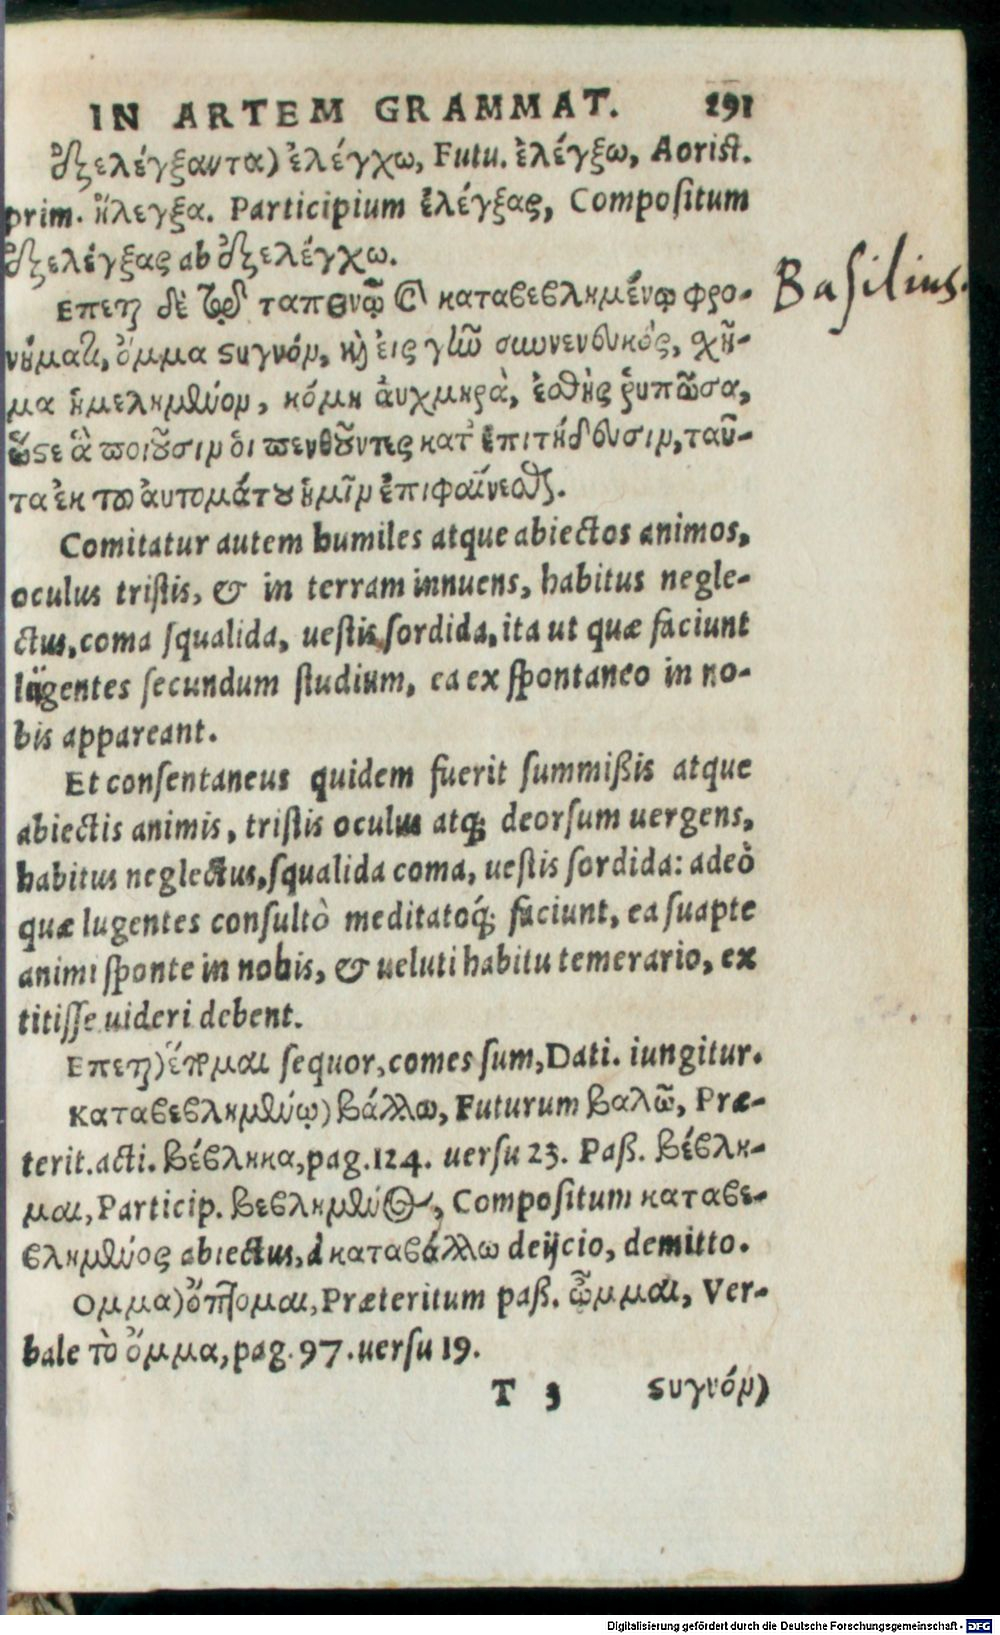 IN ARTEM GRAMMAT. 291
ἐξελέγξαντα) ἐλέγχω, Futu. ἐλέγξω, Aorist.
prim. ἤλεγξα. Participium ἐλέγξας, Compositum
ἐξελέγξας ab ἐξελέγχω.
Basilius.
Επεται δὲ τῷ ταπεινῷ καὶ καταβεβλημένῳ φρο-
νήματι, ὄμμα στυγνόν, καὶ εἰς γῆν συννενευκός, σχῆ-
μα ἠμελημένον, κόμη ἀυχμηρὰ, ἐσθὴς ῥυπῶσα,
ὥστε ἃ ποιοῦσιν ὁι πενθοῦντες κατ' ἐπιτήδευσιν, ταῦ-
τα ἐκ τοῦ ἀυτομάτου ἡμῖν ἐπιφαίνεσθαι.
Comitatur autem humiles atque abiectos animos,
oculus tristis, & in terram innuens, habitus negle-
ctus, coma squalida, uestis sordida, ita ut quæ faciunt
lugentes secundum studium, ea ex spontaneo in no-
bis appareant.
Et consentaneus quidem fuerit summißis atque
abiectis animis, tristis oculus atq; deorsum uergens,
habitus neglectus, squalida coma, uestis sordida: adeò
quæ lugentes consultò meditatoq́; faciunt, ea suapte
animi sponte in nobis, & ueluti habitu temerario, ex
titisse uideri debent.
Επεται) ἕπομαι sequor, comes sum, Dati. iungitur.
Καταβεβλημένῳ) βάλλω, Futurum βαλῶ, Præ-
terit. acti. βέβληκα, pag. 124. uersu 23. Paß. βέβλη-
μαι, Particip. βεβλημένος, Compositum καταβε-
βλημένος abiectus, à καταβάλλω deijcio, demitto.
Ομμα) ὄπτομαι, Præteritum paß. ὦμμαι, Ver-
bale τὸ ὄμμα, pag. 97. uersu 19.
T 3 στυγνόν)
Digitalisierung gefördert durch die Deutsche Forschungsgemeinschaft - DFG